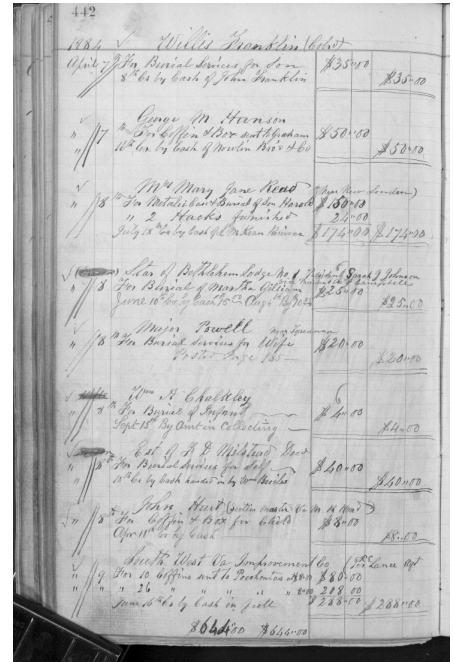 442
1884 Willis Franklin (Cold)
April 7 For Burial Services for Son $35.00
8th Cr by Cash of John Franklin $35.00
George M Hanson
" 7 For Coffin & Box sent to Graham $50.00
Cr. by Cash of Bro's & Co $50.00
Mrs Mary Jane Read (near New London)
" 8 For Metalic Case & Burial of Son Harold $150.00
" 2 Hacks furnished 24.00
July 18th Cr by Cash of $174.00 $174.00
Star of Bethlehem Lodge No 1 President Sarah J Johnson
" 8 For Burial of Martha Gilliam $25.00
June 10th Cr by Cash $25.00
Major Powell near
" 8 For Burial Services for Wife $20.00
Posted Page $20.00
Wm A Chalkley
" 8th For Burial of Infant $4.00
Sept 18th By Amt in Collecting $4.00
Est of R D Milstead Decd
" 8 For Burial Services for Self $40.00
Cr by Cash handed in by Wm $40.00
John Hurt
" 8th For Coffin & Box for Child $8.00
Apr Cr by Cash $8.00
South West Va Improvement Co
" 9 For 10 Coffins sent to Pocahontas at 8.00 $80.00
" " 26 " " " " 8.00 208.00
June 16th Cr by Cash in full $288.00 $288.00
$644.00 $644.00